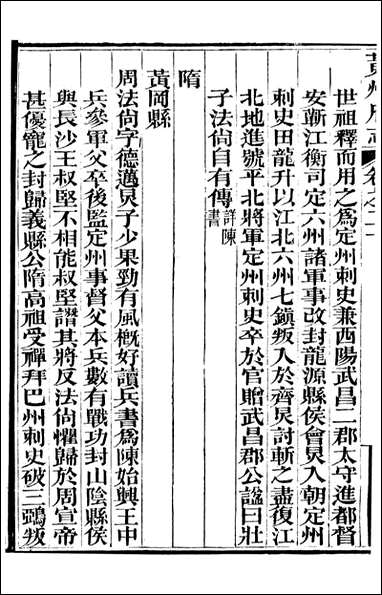 黃州府志 卷之二十
世祖釋而用之爲定州刺史兼西陽武昌二郡太守進都督
安蘄江衡司定六州諸軍事改封龍源縣侯會炅入朝定州
刺史田龍升以江北六州七鎭叛入於齊炅討斬之盡復江
北地進號平北將軍定州刺史卒於官贈武昌郡公諡曰壯
子法尙自有傳 詳陳書
隋
黃岡縣
周法尙字德邁炅子少果勁有風槪好讀兵書爲陳始興王中
兵參軍父卒後監定州事督父本兵數有戰功封山陰縣侯
與長沙王叔堅不相能叔堅譖其將反法尙懼歸於周宣帝
甚優寵之封歸義縣公隋高祖受禪拜巴州刺史破三鵶叛